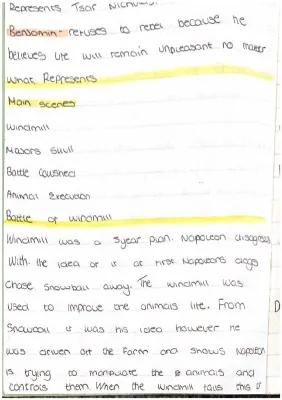 Represents Tsar Nicholas
Benjamin - refuses to rebel because he
believes life will remain unpleasant no matter
what. Represents
Main scenes
Windmill
Majors Skull
Battle Cowshed
Animal Execution
Battle of windmill
Windmill was a 5year plan. Napoleon disagrees
With the idea of it at first Napoleons dogs
Chase Snowball away. The windmill was
used to improve the animals life. From
Snowball it was his idea however he
was driven off the farm and shows Napoleon
is trying to manipulate the animals and
controls them. When the windmill falls this is
D